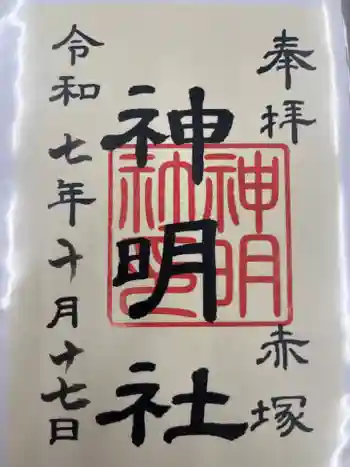 奉拝
赤塚
神明社
神明社印
令和七年十月十七日